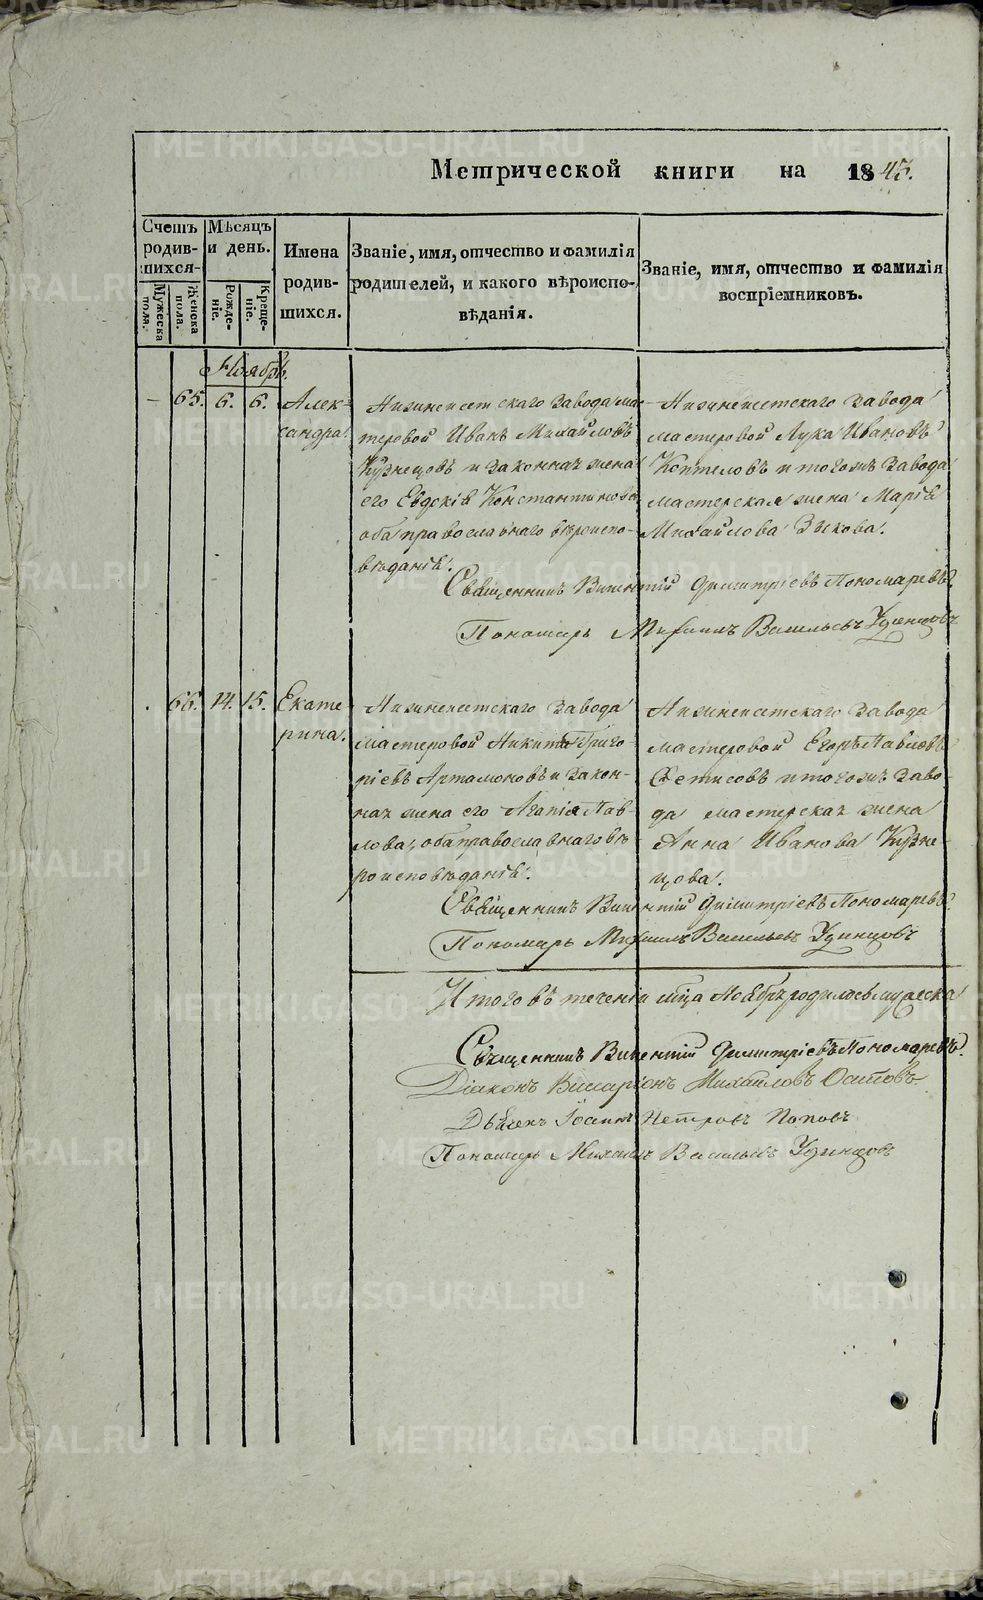 METRIKI.GASO-URAL.RU
Метрической книги на 1845.
Счетъ родив-шихся.
Мужеска пола.
Женска пола.
Мѣсяцъ и день.
Рожде-ніе.
Креще-ніе.
Имена родив-шихся.
Званіе, имя, отчество и фамилія родителей, и какого вѣроиспо-вѣданія.
Званіе, имя, отчество и фамилія воспріемниковъ.
Ноябрь.
– 65. 6. 6.
Алек-
сандра.
Нижнеисетскаго завода ма-
стеровой Иванъ Михайловъ
Кузнецовъ и законная жена
его Евдокія Константинова
оба православнаго вѣроиспо-
вѣданія.
Нижнеисетскаго завода
мастеровой Лука Ивановъ
Коптеловъ и тогожъ завода
мастерская жена Марія
Михайлова Зыкова.
Священникъ Викентій Димитріевъ Пономаревъ.
Пономарь Михаилъ Васильевъ Удинцовъ
66. 14. 15.
Екате-
рина.
Нижнеисетскаго завода
мастеровой Никита Григо-
ріевъ Артамоновъ и закон-
ная жена его Агапія Пав-
лова, оба православнаго вѣ-
роисповѣданія.
Нижнеисетскаго завода
мастеровой Егоръ Павловъ
Фетисовъ и тогожъ заво-
да мастерская жена
Анна Иванова Кузне-
цова.
Священникъ Викентій Димитріевъ Пономаревъ.
Пономарь Михаилъ Васильевъ Удинцовъ
Итого въ теченіи мца Ноября родилось мужеска
Священникъ Викентій Димитріевъ Пономаревъ.
Діаконъ Виссаріонъ Михайловъ Осиповъ
Іоаннъ Петровъ Поповъ
Пономарь Михаилъ Васильевъ Удинцовъ